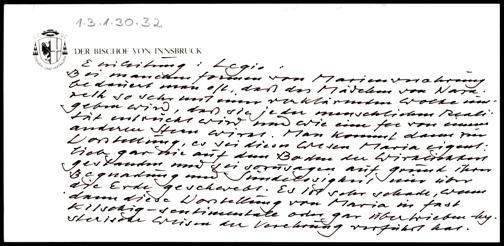 1.3.1.30.32
DER BISCHOF VON INNSBRUCK
Einleitung: Legio:
Bei manchen Formen von Marienverehrung
bedauert man oft, daß das Mädchen von Naza-
reth so sehr mit einer verklärenden Wolke um-
geben wird, daß sie jeder menschlichen Reali-
tät entrückt wird und wie eine Fee von einem
anderen Stern wirkt. Man kommt dann zur
Vorstellung, es sei dieses Wesen Maria eigent-
lich gar nie auf dem Boden der Wirklichkeit
gestanden und sei sozusagen auf Grund ihrer
Begnadung und Sündelosigkeit nur über
die Erde geschwebt. Es ist sehr schade, wenn
dann diese Vorstellung von Maria in fast
kitschig-sentimentale oder gar übertrieben-hy-
sterische Weisen der Verehrung verführt hat.